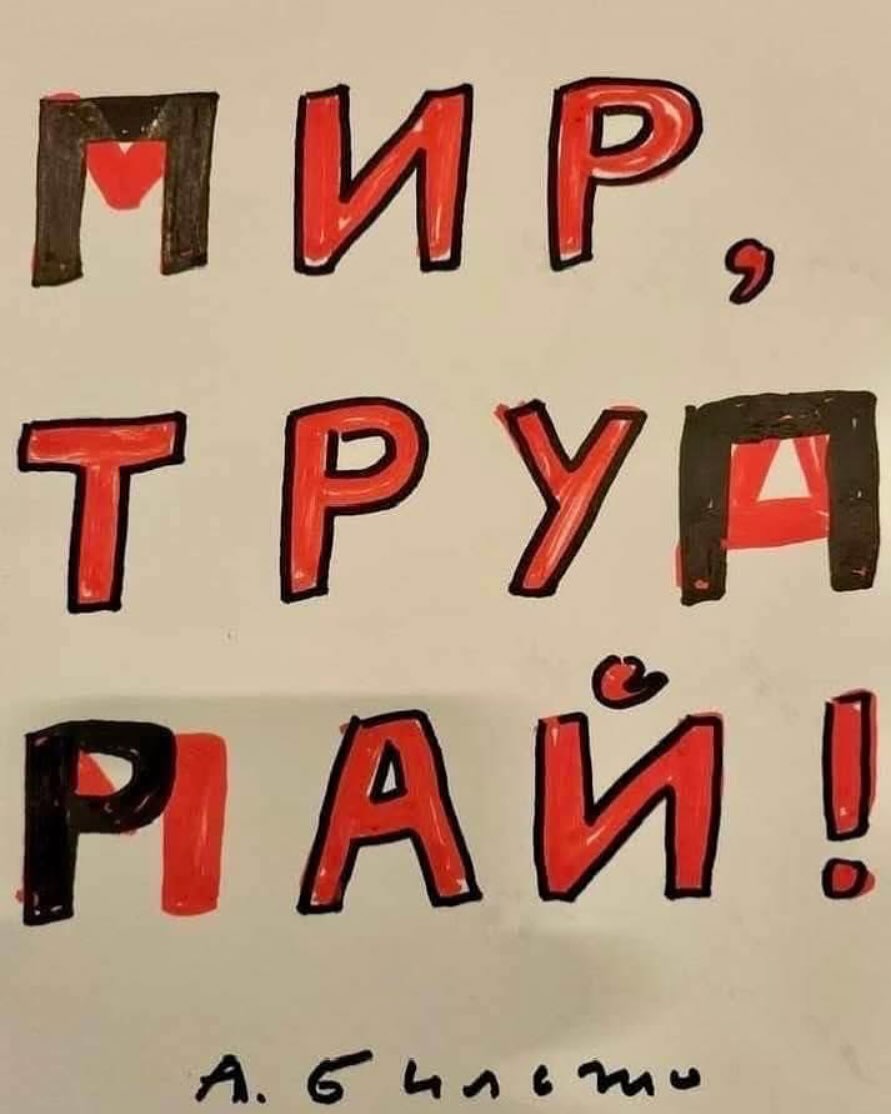 ПИР,
ТРУП
РАЙ!
А. Бильжо